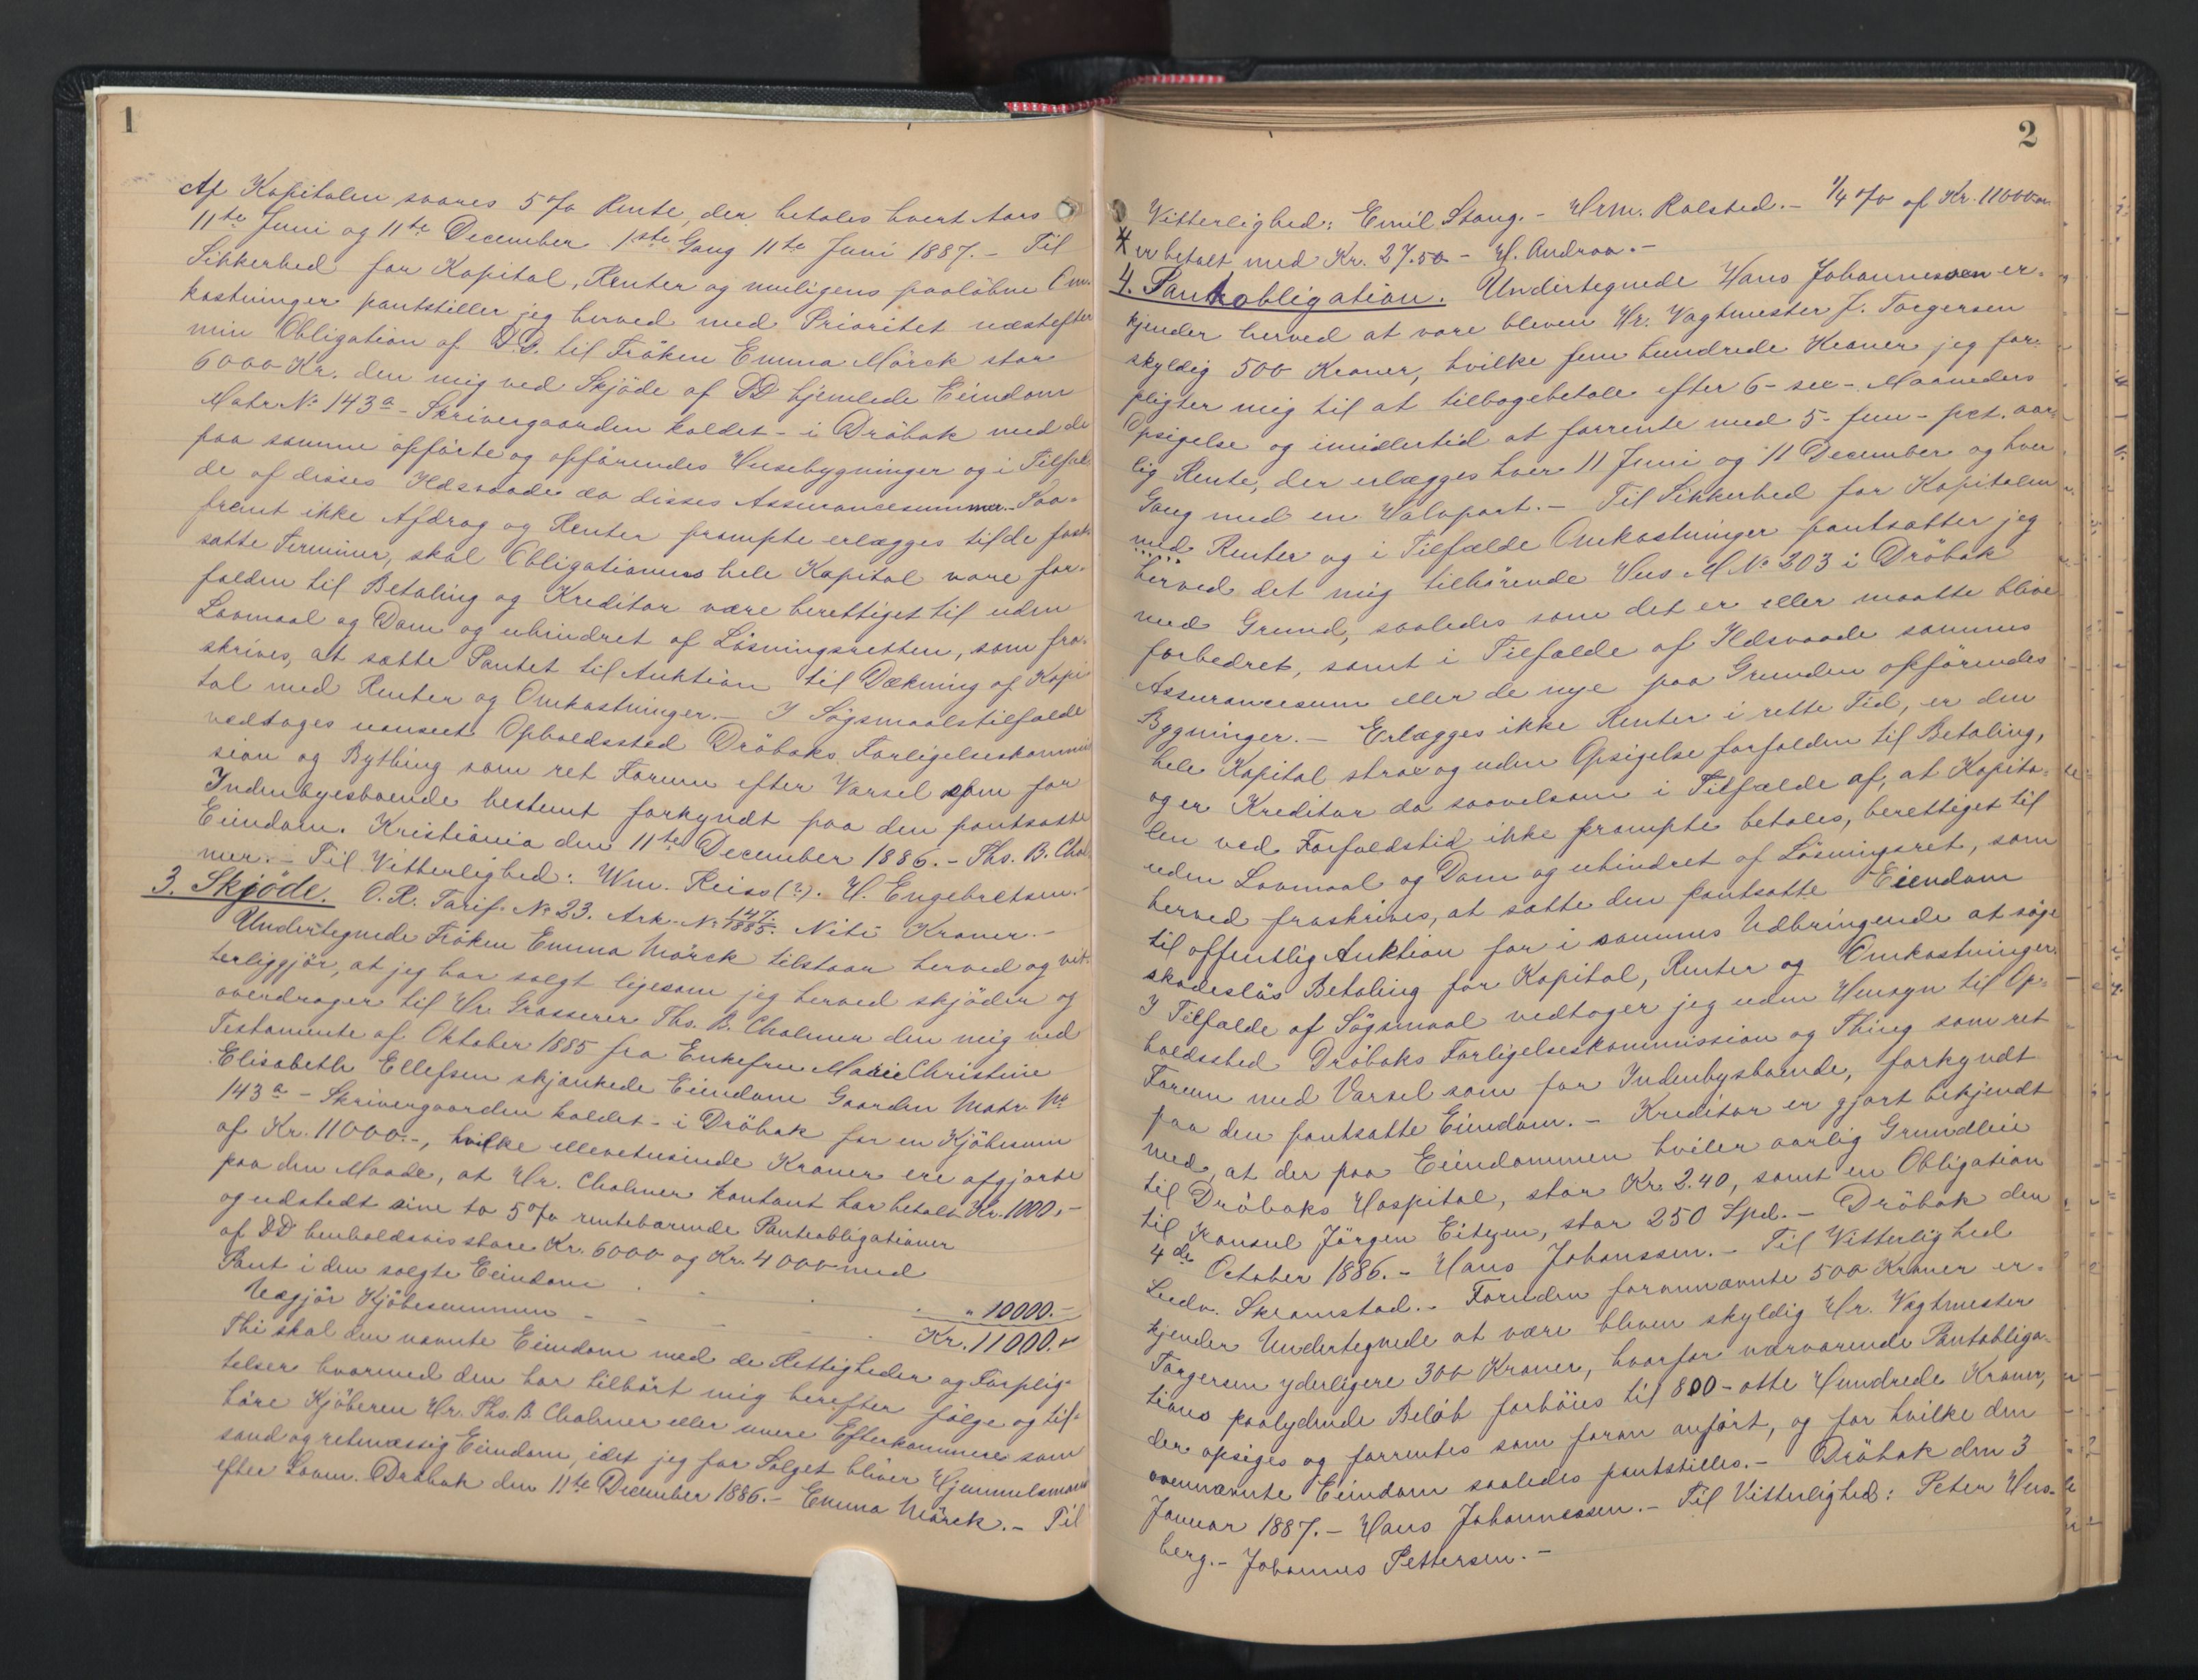 1
Af Kapitalen svares 5 % Rente, der betales hvert Aars
11te Juni og 11te December 1ste Gang 11te Juni 1887. - Til
Sikkerhed for Kapital, Renter og muligens paaløbne Om-
kostninger pantstiller jeg herved med Prioritet næstefter
min Obligation af D.D. til Frøken Emma Mörck stor
6000 Kr. den mig ved Skjöde af DD hjemlede Eiendom
Matr. No 143a - Skrivergaarden kaldet - i Dröbak med de
paa samme opförte og opförendes Husebygninger og i Tilfæl-
de af disses Ildsvaade da disses Assurancesummer. Saa-
fremt ikke Afdrag og Renter prompte erlægges til de fast-
satte Terminer, skal Obligationens hele Kapital være for-
falden til Betaling og Kreditor være berettiget til uden
Lovmaal og Dom og uhindret af Løsningsretten, som fra-
skrives, at sætte Pantet til Auktion til Dækning af Kapi-
tal med Renter og Omkostninger. - I Søgsmaalstilfælde
vedtages uanseet Opholdssted Dröbaks Forligelseskommis-
sion og Bything som ret Forum efter Varsel som for
Indenbyesboende bestemt forkyndt paa den pantsatte
Eiendom. Kristiania den 11te December 1886. - Ths. B. Chal-
mer. - Til Vitterlighed: Wm. Reiss (?). H. Engebretsen. -
3. Skjöde. O. R. Tarif. No 23. Ark. No 147/1885. Niti Kroner. -
Undertegnede Fröken Emma Mörck tilstaar herved og vit-
terliggjör, at jeg har solgt ligesom jeg herved skjöder og
overdrager til Hr. Grosserer Ths. B. Chalmer den mig ved
Testamente af Oktober 1885 fra Enkefru Marie Christine
Elisabeth Ellefsen skjænkede Eiendom Gaarden Matr. No
143a - Skrivergaarden kaldet - i Dröbak for en Kjöbesum
af Kr. 11000.-, hvilke ellevetusinde Kroner ere afgjorte
paa den Maade, at Hr. Chalmer kontant har betalt Kr. 1000.-
og udstedt sine to 5 % rentebærende Panteobligationer
af DD henholdsvis store Kr. 6000 og Kr. 4000 med
Pant i den solgte Eiendom . . . . " 10000.-
Udgjör Kjöbesummen - - - - - Kr. 11000.-
Thi skal den nævnte Eiendom med de Rettigheder og Forplig-
telser hvormed den har tilhört mig herefter fölge og til-
höre Kjöberen Hr. Ths. B. Chalmer eller Efterkommere som
sand og retmæssig Eiendom, idet jeg for Salget bliver Hjemmelsmand
efter Loven. Dröbak den 11te December 1886. - Emma Mörck. - Til
2
Vitterlighed: Emil Stang. - Hrm. Ralsted. - 1/4 % af Kr. 11000.-
er betalt med Kr. 27.50 - H. Andraa. -
4. Pantobligation. Undertegnede Hans Johannessen er-
kjender herved at være bleven Hr. Vagtmester J. Torgersen
skyldig 500 Kroner, hvilke fem hundrede Kroner jeg for-
pligter mig til at tilbagebetale efter 6 - sex - Maaneders
Opsigelse og imidlertid at forrente med 5 - fem - pct. aar-
lig Rente, der erlægges hver 11 Juni og 11 December og hver
Gang med en Halvpart. - Til Sikkerhed for Kapitalen
med Renter og i Tilfælde Omkostninger pantsætter jeg
herved det mig tilhörende Hus M No 203 i Dröbak
med Grund, saaledes som det er eller maatte blive
forbedret, samt i Tilfælde af Ildsvaade sammes
Assurancesum eller de nye paa Grunden opförendes
Bygninger. - Erlægges ikke Renter i rette Tid, er den
hele Kapital strax og uden Opsigelse forfalden til Betaling,
og er Kreditor da saavelsom i Tilfælde af, at Kapita-
len ved Forfaldstid ikke prompte betales, berettiget til
uden Lovmaal og Dom og uhindret af Løsningsret, som
herved fraskrives, at sætte den pantsatte Eiendom
til offentlig Auktion for i sammes Udbringende at søge
skadeslös Betaling for Kapital, Renter og Omkostninger.
I Tilfælde af Søgsmaal vedtager jeg uden Hensyn til Op-
holdssted Dröbaks Forligelseskommission og Thing som ret
Forum med Varsel som for Indenbysboende, forkyndt
paa den pantsatte Eiendom. - Kreditor er gjort bekjendt
med, at der paa Eiendommen hviler aarlig Grundleie
til Dröbaks Hospital, stor Kr. 2.40, samt en Obligation
til Konsul Jörgen Eitzen, stor 250 Spd. - Dröbak den
4de October 1886. - Hans Johanssen. - Til Vitterlighed
Ludv. Skramstad. - Foruden forannævnte 500 Kroner er-
kjender Undertegnede at være bleven skyldig Hr. Vagtmester
Torgersen yderligere 300 Kroner, hvorfor nærværende Pantobliga-
tions paalydende Belöb forhöies til 800 - otte Hundrede Kroner,
der opsiges og forrentes som foran anfört, og for hvilke den
ovennævnte Eiendom saaledes pantstilles. - Dröbak den 3
Januar 1887. - Hans Johannessen. - Til Vitterlighed: Peter Hus-
berg. - Johannes Pettersen. -